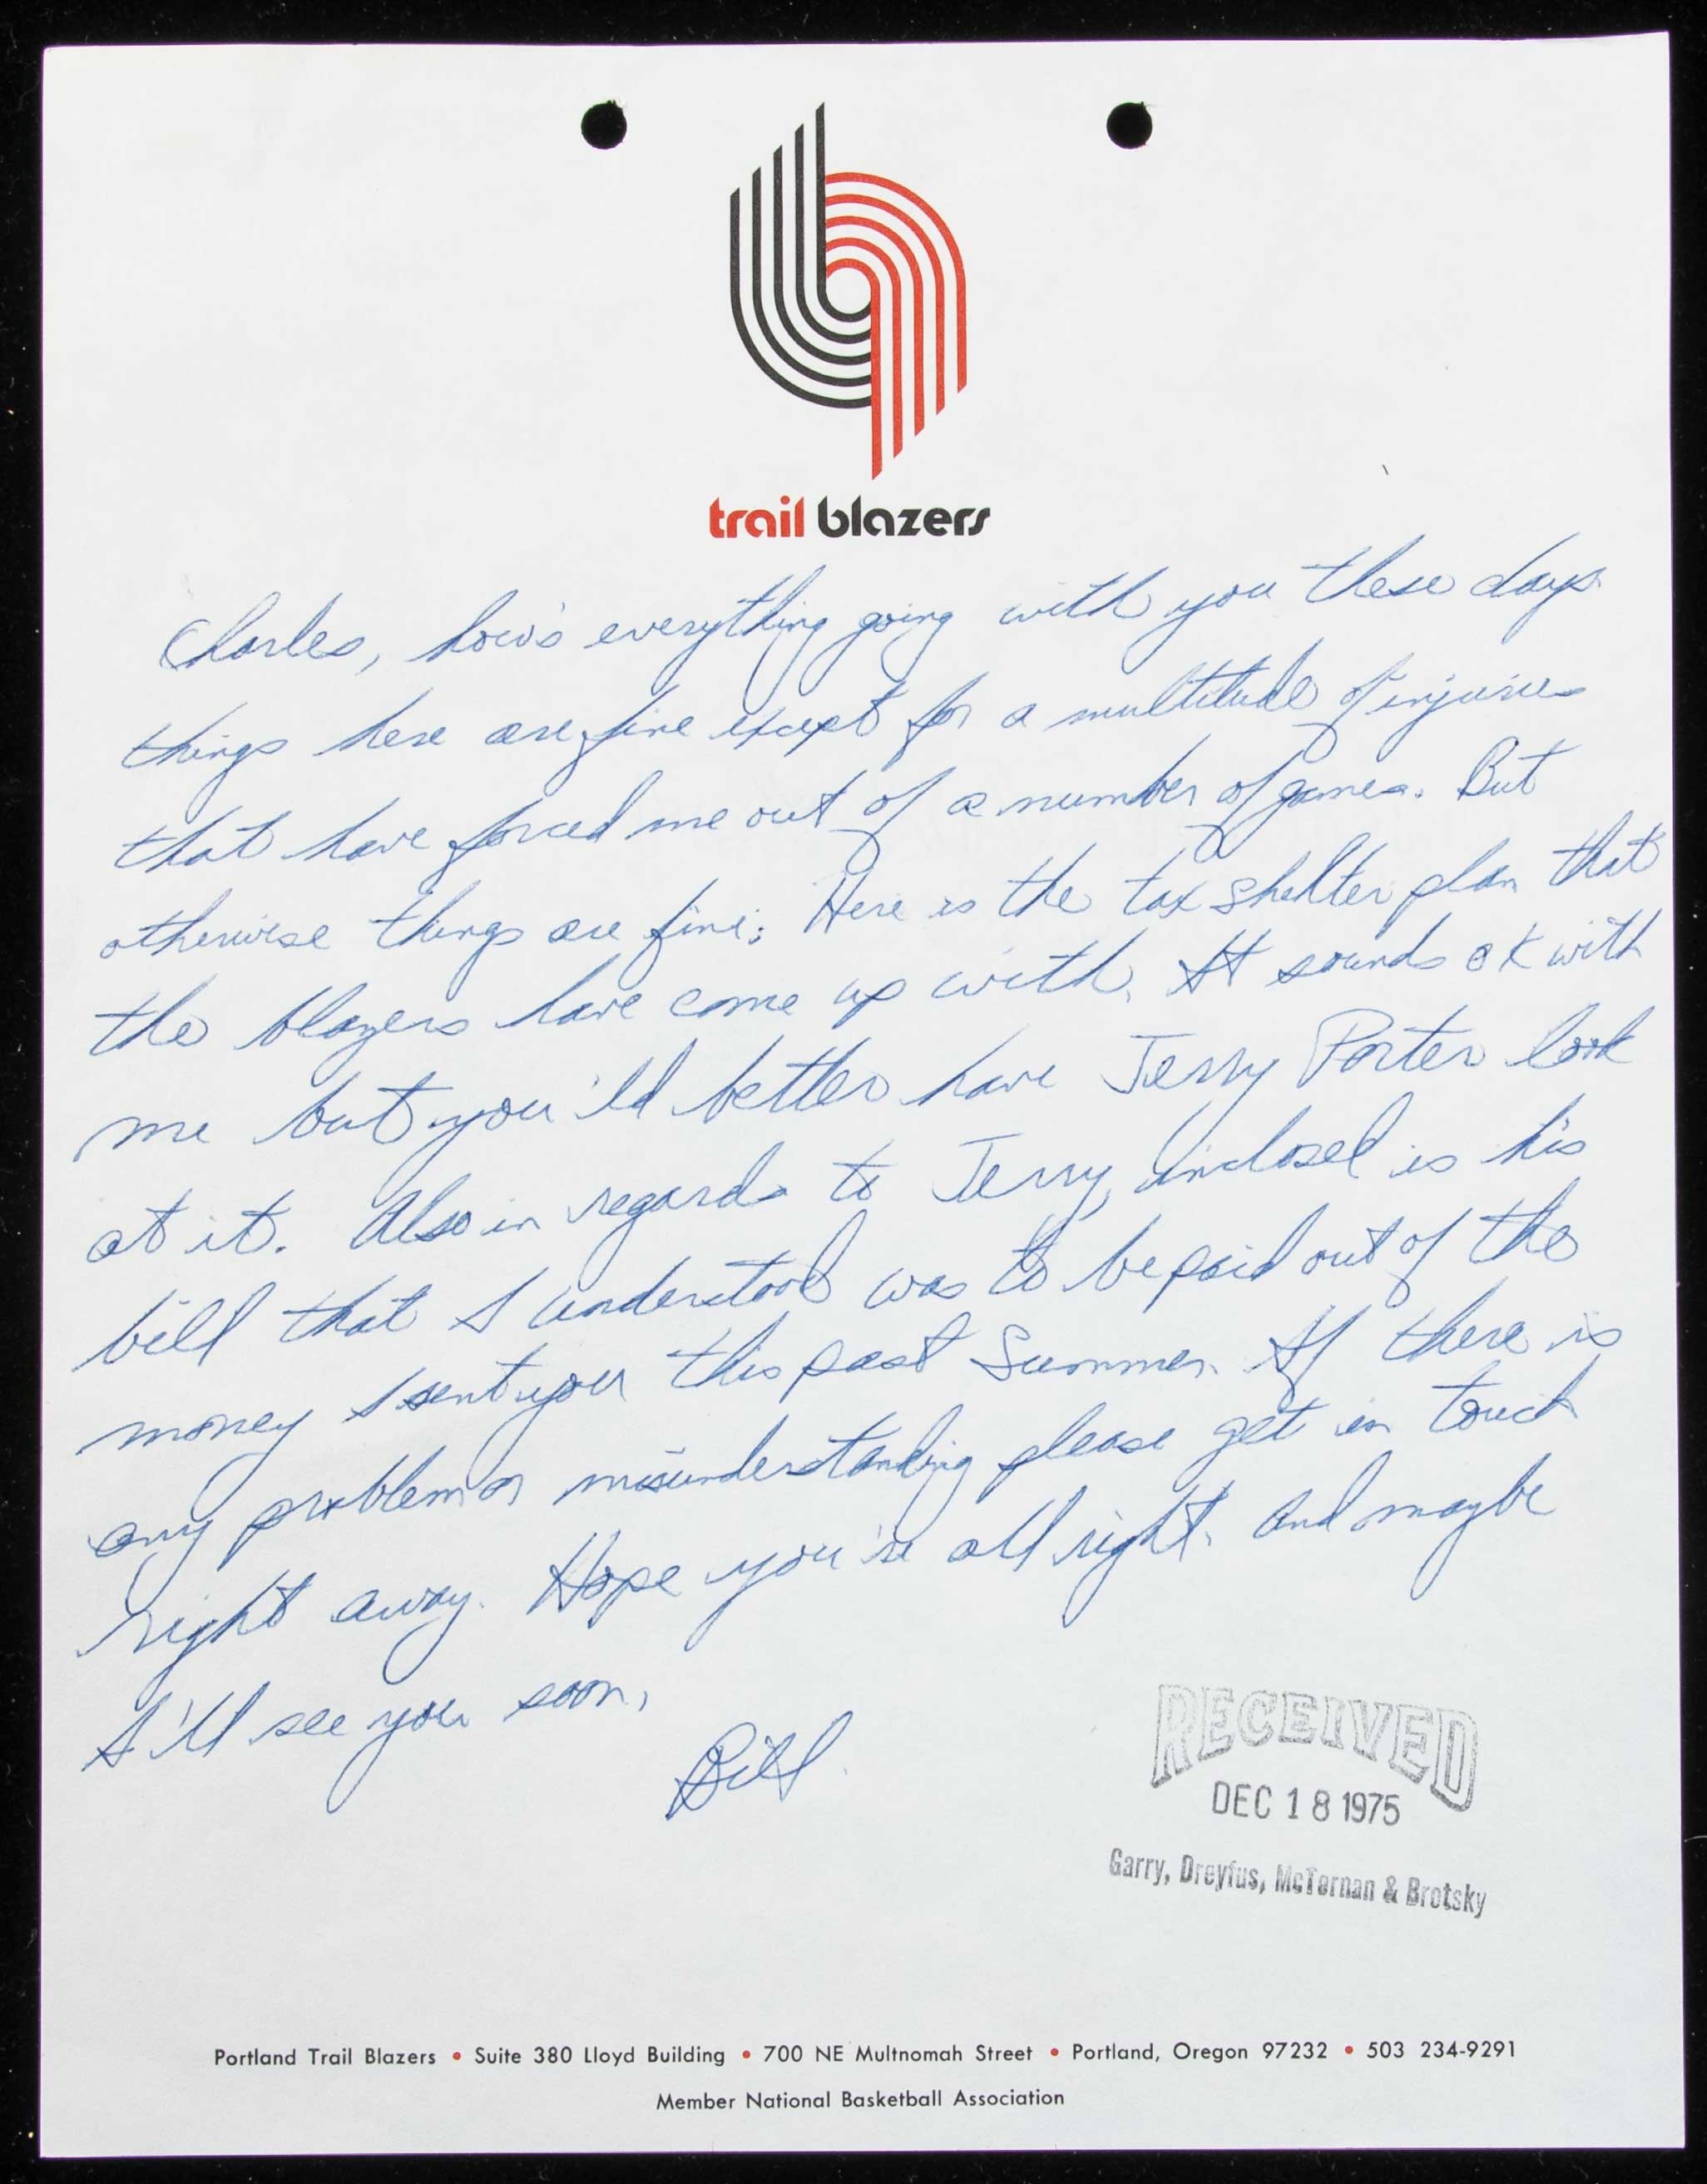 trail blazers
Charles, how's everything going with you these days.
things here are fine except for a multitude of injuries
that have forced me out of a number of games. But
otherwise things are fine. Here is the tax shelter plan that
the blazers have come up with. It sounds OK with
me but you'ld better have Jerry Porter look
at it. Also in regards to Jerry, inclosed is his
bill that I understood was to be paid out of the
money I sent you this past Summer. If there is
any problem or misunderstanding please get in touch
right away. Hope you're all right. And maybe
I'll see you soon,
Bill.
RECEIVED
DEC 18 1975
Garry, Dreyfus, McTernan & Brotsky
Portland Trail Blazers • Suite 380 Lloyd Building • 700 NE Multnomah Street • Portland, Oregon 97232 • 503 234-9291
Member National Basketball Association